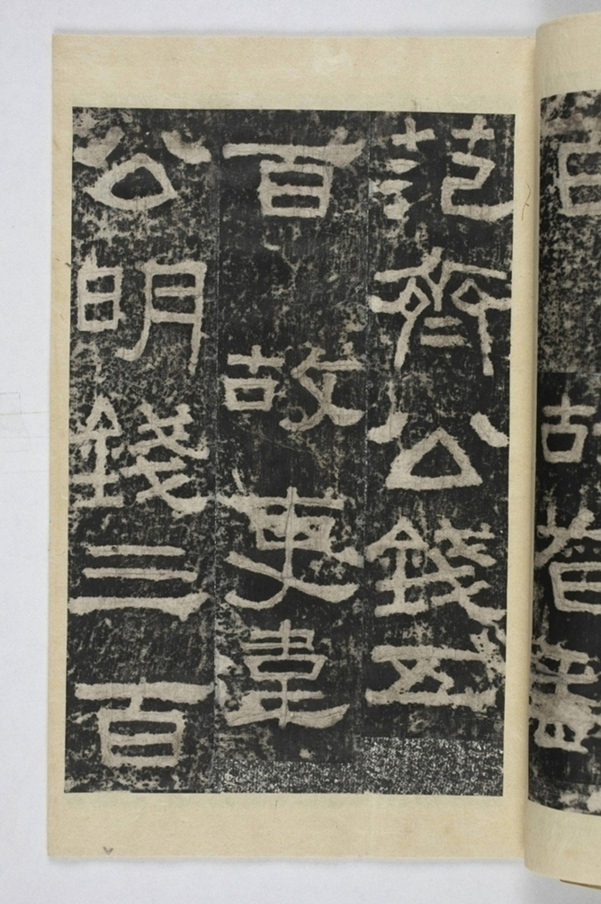 范齊公錢五
百 故吏韋
公明錢三百